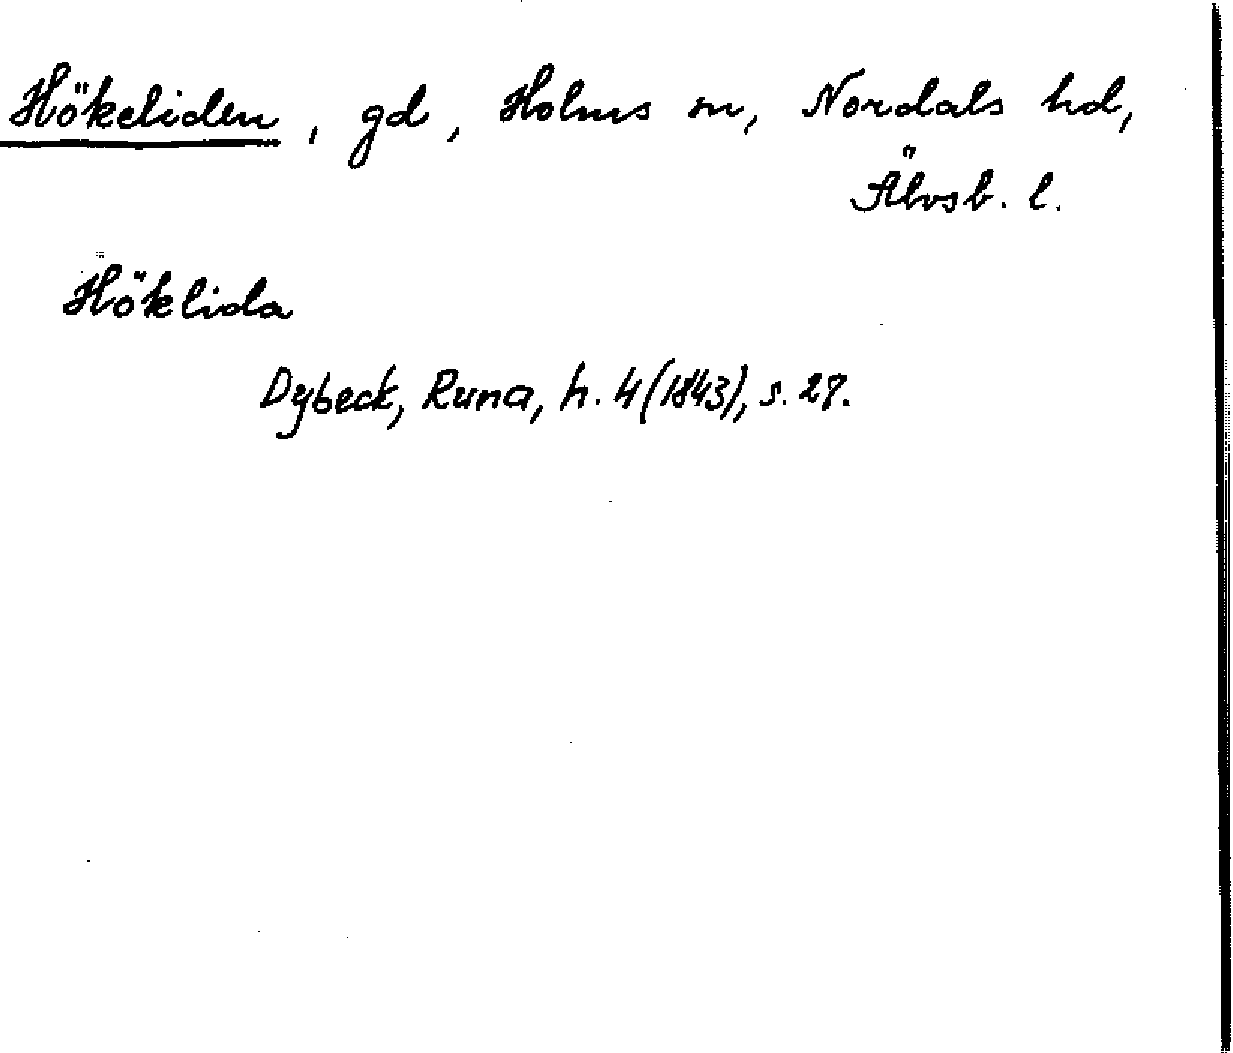 Hökeliden, gd, Holms sn, Nordals hd,
Älvsb. l.
Höklida
Dybeck, Runa, h. 4 (1843), s. 27.